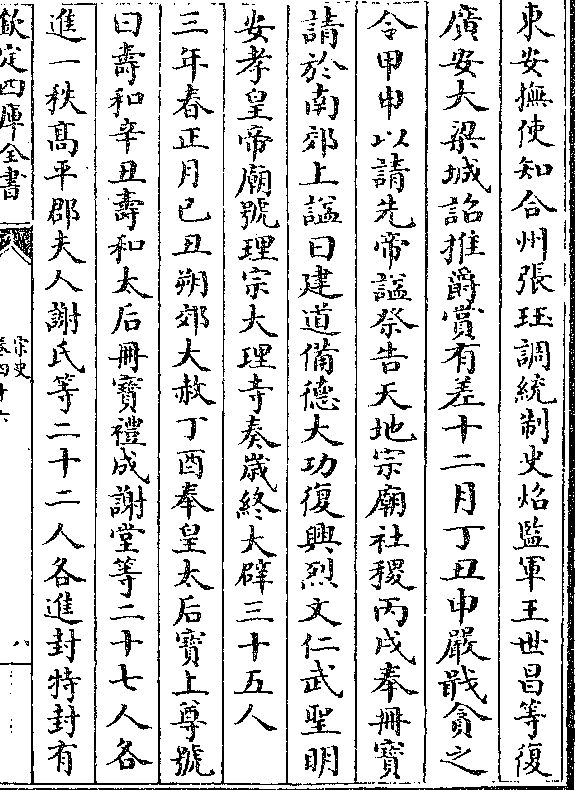 東安撫使知合州張珏調統制史炤監軍王世昌等復
廣安大梁城詔推爵賞有差十二月丁丑申嚴戢貪之
令甲申以請先帝諡祭告天地宗廟社稷丙戌奉冊寶
請於南郊上諡曰建道備德大功復興烈文仁武聖明
安孝皇帝廟號理宗大理寺奏歲終大辟三十五人
三年春正月己丑朔郊大赦丁酉奉皇太后寶上尊號
曰壽和辛丑壽和太后冊寶禮成謝堂等二十七人各
進一秩高平郡夫人謝氏等二十二人各進封特封有
欽定四庫全書
宋史
卷四十六
八